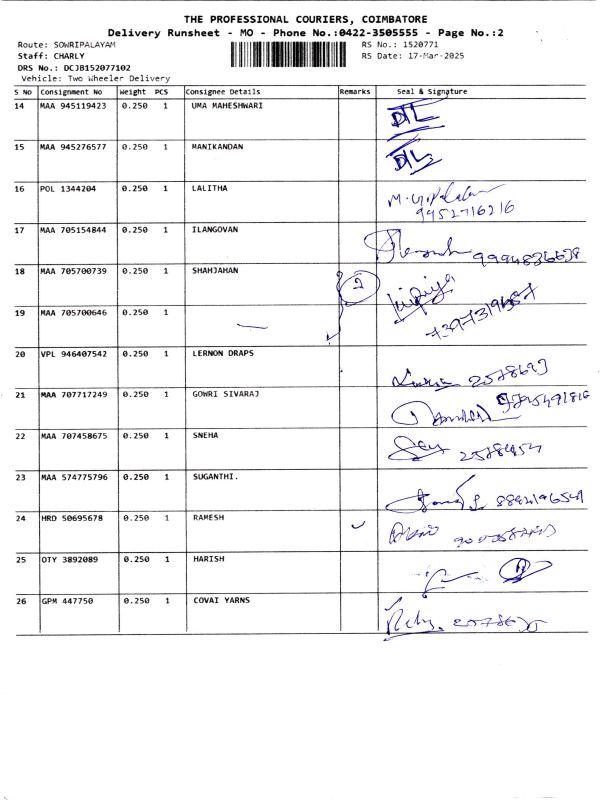 THE PROFESSIONAL COURIERS, COIMBATORE
Delivery Runsheet - MO - Phone No.:0422-3505555 - Page No.:2
Route: SOWRIPALAYAM RS No.: 1520771
Staff: CHARLY RS Date: 17-Mar-2025
DRS No.: DCJB152077102
Vehicle: Two Wheeler Delivery
S NO Consignment No Weight PCS Consignee Details Remarks Seal & Signature
14 MAA 945119423 0.250 1 UMA MAHESHWARI D/L
15 MAA 945276577 0.250 1 MANIKANDAN D/L
16 POL 1344204 0.250 1 LALITHA
9452716216
17 MAA 705154844 0.250 1 ILANGOVAN
18 MAA 705700739 0.250 1 SHAHJAHAN 2
19 MAA 705700646 0.250 1
20 VPL 946407542 0.250 1 LERNON DRAPS
21 MAA 707717249 0.250 1 GOWRI SIVARAJ
22 MAA 707458675 0.250 1 SNEHA
23 MAA 574775796 0.250 1 SUGANTHI.
24 HRD 50695678 0.250 1 RAMESH
25 OTY 3892089 0.250 1 HARISH
26 GPM 447750 0.250 1 COVAI YARNS